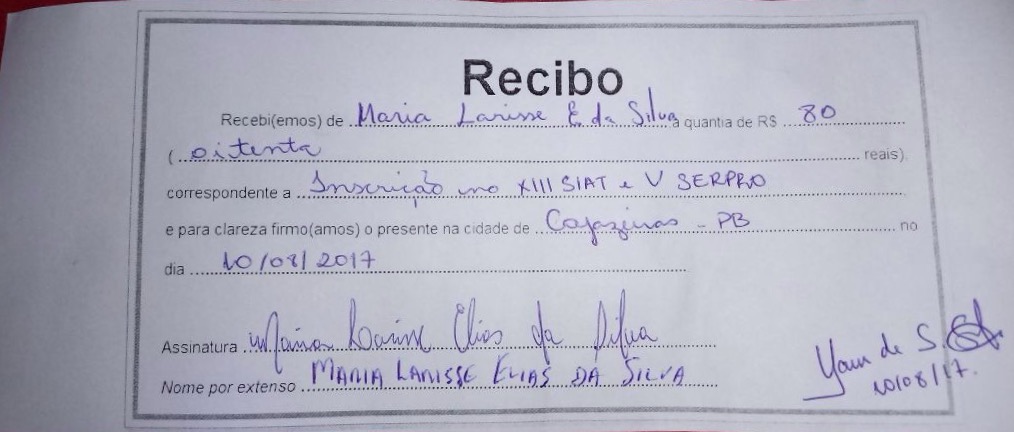 Recibo
Recebi(emos) de Maria Larisse E da Silva a quantia de R$ 80
( oitenta reais)
correspondente a Inscrição no XIII SIAT e V SERPRO
e para clareza firmo(amos) o presente na cidade de Cajazeiras - PB no
dia 10/08/2017
Assinatura Maria Larisse Elias da Silva
Nome por extenso MARIA LARISSE ELIAS DA SILVA
de S.
10/08/17.